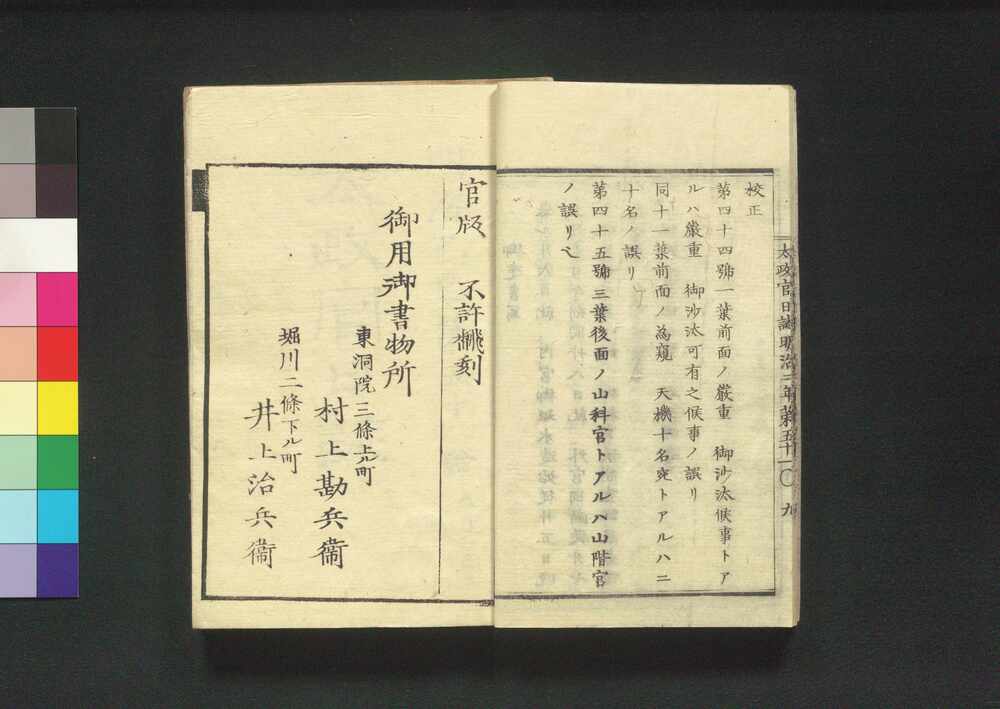 校正
第四十四號一葉前面ノ嚴重　御沙汰候事トア
ルハ嚴重　御沙汰可有之候事ノ誤リ
同十一葉前面ノ為窺　天機十名宛トアルハ二
十名ノ誤リ
第四十五號三葉後面ノ山科官トアルハ山階官
ノ誤リ
太政官日誌明治二年第五十一〇　九
官版　不許飜刻
御用御書物所
東洞院三條上ル町
村上勘兵衞
堀川二條下ル町
井上治兵衞